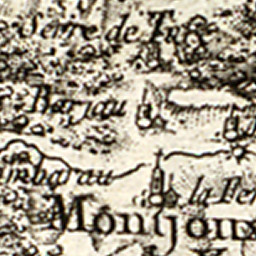 Serre de Tu
Barjau
mbarau
la Fer
Montjoux